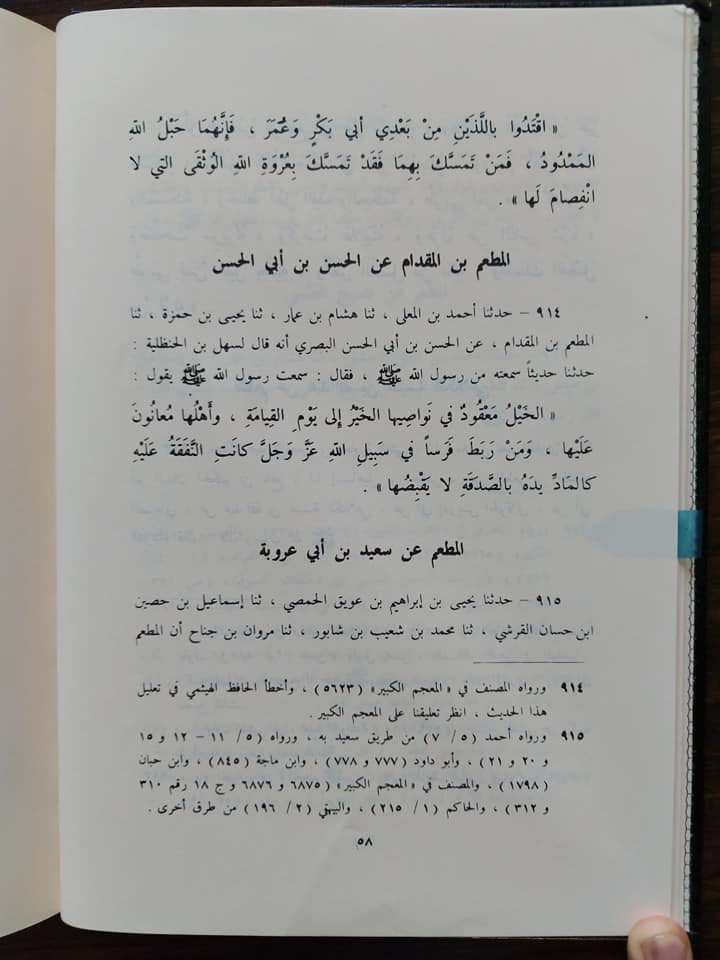 « اقْتَدُوا باللَّذَيْنِ مِنْ بَعْدِي أبي بَكْرٍ وَعُمَرَ ، فَإِنَّهُما حَبْلُ اللهِ
المَمْدُودُ ، فَمَنْ تَمَسَّكَ بِهِمَا فَقَدْ تَمَسَّكَ بِعُرْوَةِ اللهِ الوُثْقَى التي لا
انْفِصامَ لَها » .
المطعم بن المقدام عن الحسن بن أبي الحسن
٩١٤ - حدثنا أحمد بن المعلى ، ثنا هشام بن عمار ، ثنا يحيى بن حمزة ، ثنا
المطعم بن المقدام ، عن الحسن بن أبي الحسن البصري أنه قال لسهل بن الحنظلية :
حدثنا حديثاً سمعته من رسول الله ﷺ ، فقال : سمعت رسول الله ﷺ يقول :
« الخَيْلُ مَعْقُودٌ في نَواصِيها الخَيْرُ إلى يَوْمِ القِيامَةِ ، وأَهْلُها مُعانُونَ
عَلَيْها ، وَمَنْ رَبَطَ فَرَساً في سَبِيلِ اللهِ عَزَّ وَجَلَّ كانَتِ النَّفَقَةُ عَلَيْهِ
كالمادِّ يدَهُ بالصَّدَقَةِ لا يَقْبِضُها » .
المطعم عن سعيد بن أبي عروبة
٩١٥ - حدثنا يحيى بن إبراهيم بن عويق الحمصي ، ثنا إسماعيل بن حصين
ابن حسان القرشي ، ثنا محمد بن شعيب بن شابور ، ثنا مروان بن جناح أن المطعم
٩١٤ ورواه المصنف في « المعجم الكبير » ( ٥٦٢٣ ) ، وأخطأ الحافظ الهيثمي في تعليل
هذا الحديث ، انظر تعليقنا على المعجم الكبير .
٩١٥ ورواه أحمد ( ٥ / ٧ ) من طريق سعيد به ، ورواه ( ٥ / ١١ - ١٢ و ١٥
و ٢٠ و ٢١ ) ، وأبو داود ( ٧٧٧ و ٧٧٨ ) ، وابن ماجة ( ٨٤٥ ) ، وابن حبان
( ١٧٩٨ ) ، والمصنف في « المعجم الكبير » ( ٦٨٧٥ و ٦٨٧٦ و ج ١٨ رقم ٣١٠
و ٣١٢ ) ، والحاكم ( ١ / ٢١٥ ) ، والبيهقي ( ٢ / ١٩٦ ) من طرق أخرى .
٥٨